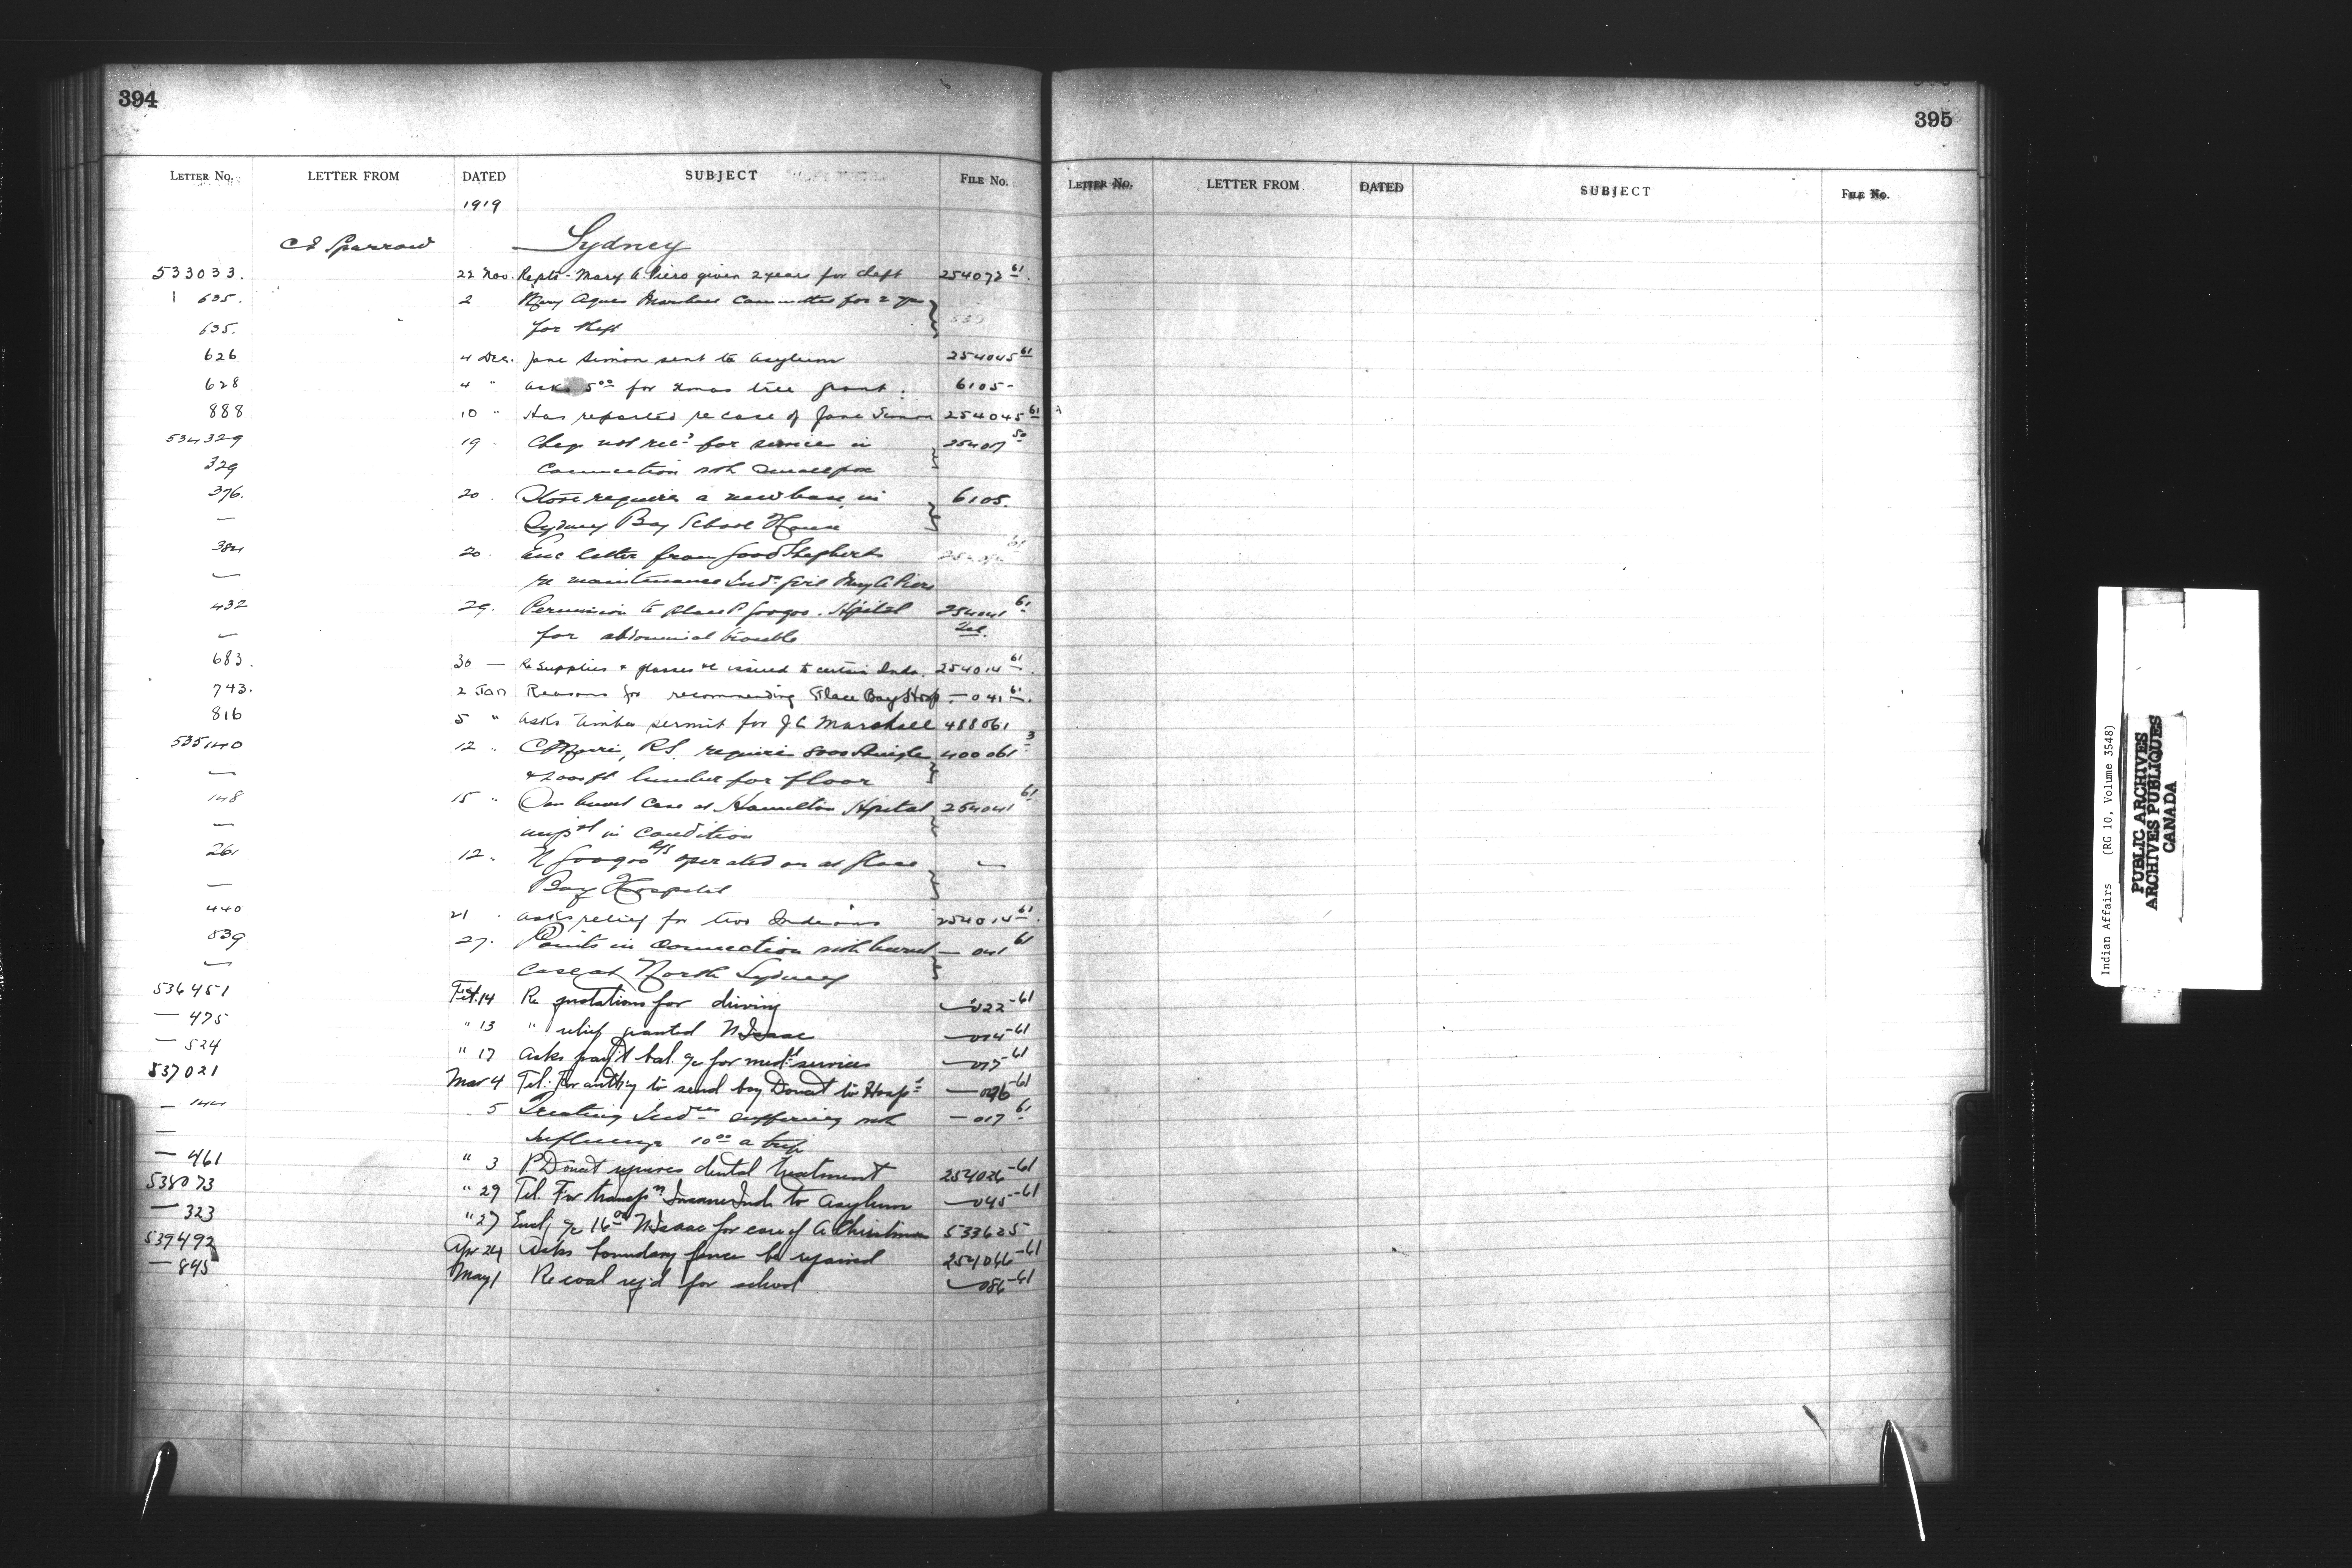 394
LETTER NO. LETTER FROM DATED SUBJECT FILE NO.
1919
Sydney
533033. 22 Nov. Repts - Mary A. Piero given 2 years for theft 254072 61
635. 2 Mary Agnes Marshall committed for 2 yrs
635. for theft
626 4 Dec. Jane Simon sent to asylum 254045 61
628 4 " asks 5 00 for xmas tree grant. 6105-
888 10 " Has reported re case of Jane Simon 254045 61
534329 19 Cheq not rec'd for service in 254017 50
329 connection with Smallpox
376. 20. Stove requires a new base in 6105.
— Sydney Bay School House
384 20. Enc letter from Good Shepherd 61
— re maintenance Ind. girl Mary A Piero
432 29. Permission to place P Googoo. Hpital 254041 61
— for abdominal trouble Tel.
683. 30 — Re supplies & glasses &c issued to certain Inds. 254014 61
743. 2 Jan Reasons for recommending Glace Bay Hosp. — 041 61
816 5 " asks timber permit for J C Marshall 488061
535140 12 " R.S. require 8000 Shingles 400061 3
— & 2000 ft lumber for floor
148 15 " case at Hamilton Hpital 254041 61
— in condition
261 12. N Googoo operated on at Glace —
— Bay Hospital
440 21 asks relief for two Indians 254014 61
839 27. Points in connection with burnt — 041 61
— case at North Sydney
536451 Feb. 14 Re quotations for driving — 022-61
— 475 " 13 " relief granted N Isaac — 014-61
— 524 " 17 Asks pay't bal. a/c for med'l services — 017-61
537021 Mar 4 Tel. For auth'y to send boy Donat to Hosp'l — 046-61
— 144 5 Treating Indns suffering with — 017 61
— Influenza 10 00 a trip
— 461 " 3 P. Donat requires dental treatment 254026-61
538073 " 29 Tel. For transp'n Insane Ind. to Asylum — 045-61
— 323 " 27 Encl; a/c 16 00 N Isaac for care of A Christmas 533625
539492 Apr 24 Asks boundary fence be repaired 254066-61
— 845 May 1 Re coal req'd for school — 086-61
C J Sparrow
395
LETTER NO. LETTER FROM DATED SUBJECT FILE NO.
Indian Affairs (RG 10, Volume 3548)
PUBLIC ARCHIVES
ARCHIVES PUBLIQUES
CANADA